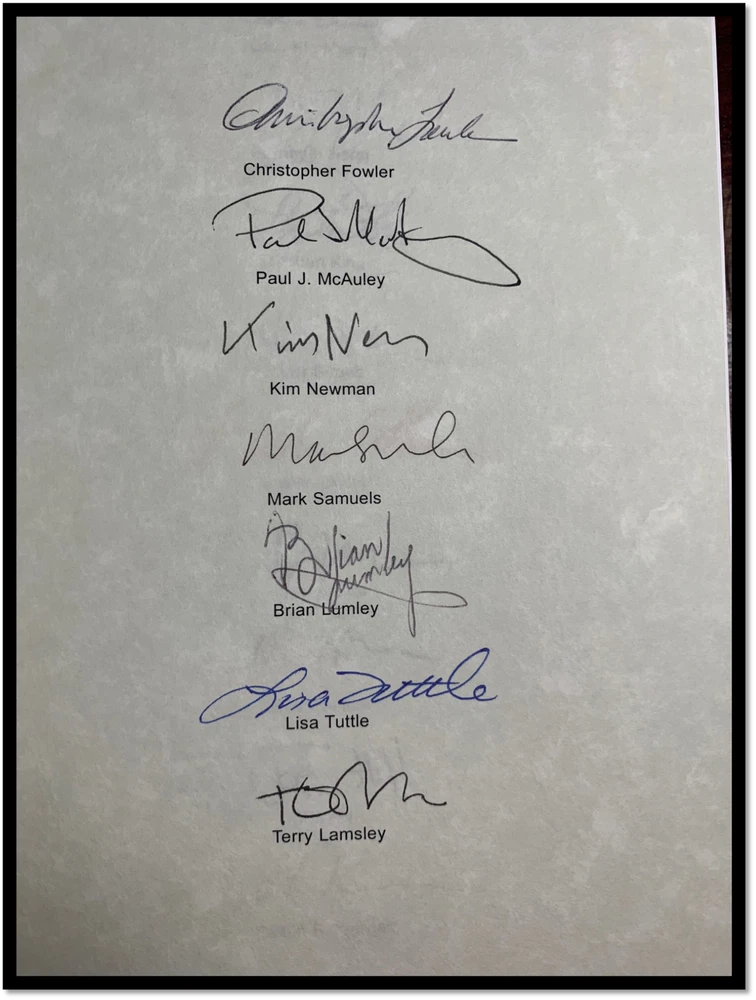 Christopher Fowler
Christopher Fowler
Paul J McAuley
Paul J. McAuley
Kim Newman
Kim Newman
Mark Samuels
Brian
Lumley
Brian Lumley
Lisa Tuttle
Lisa Tuttle
Terry Lamsley